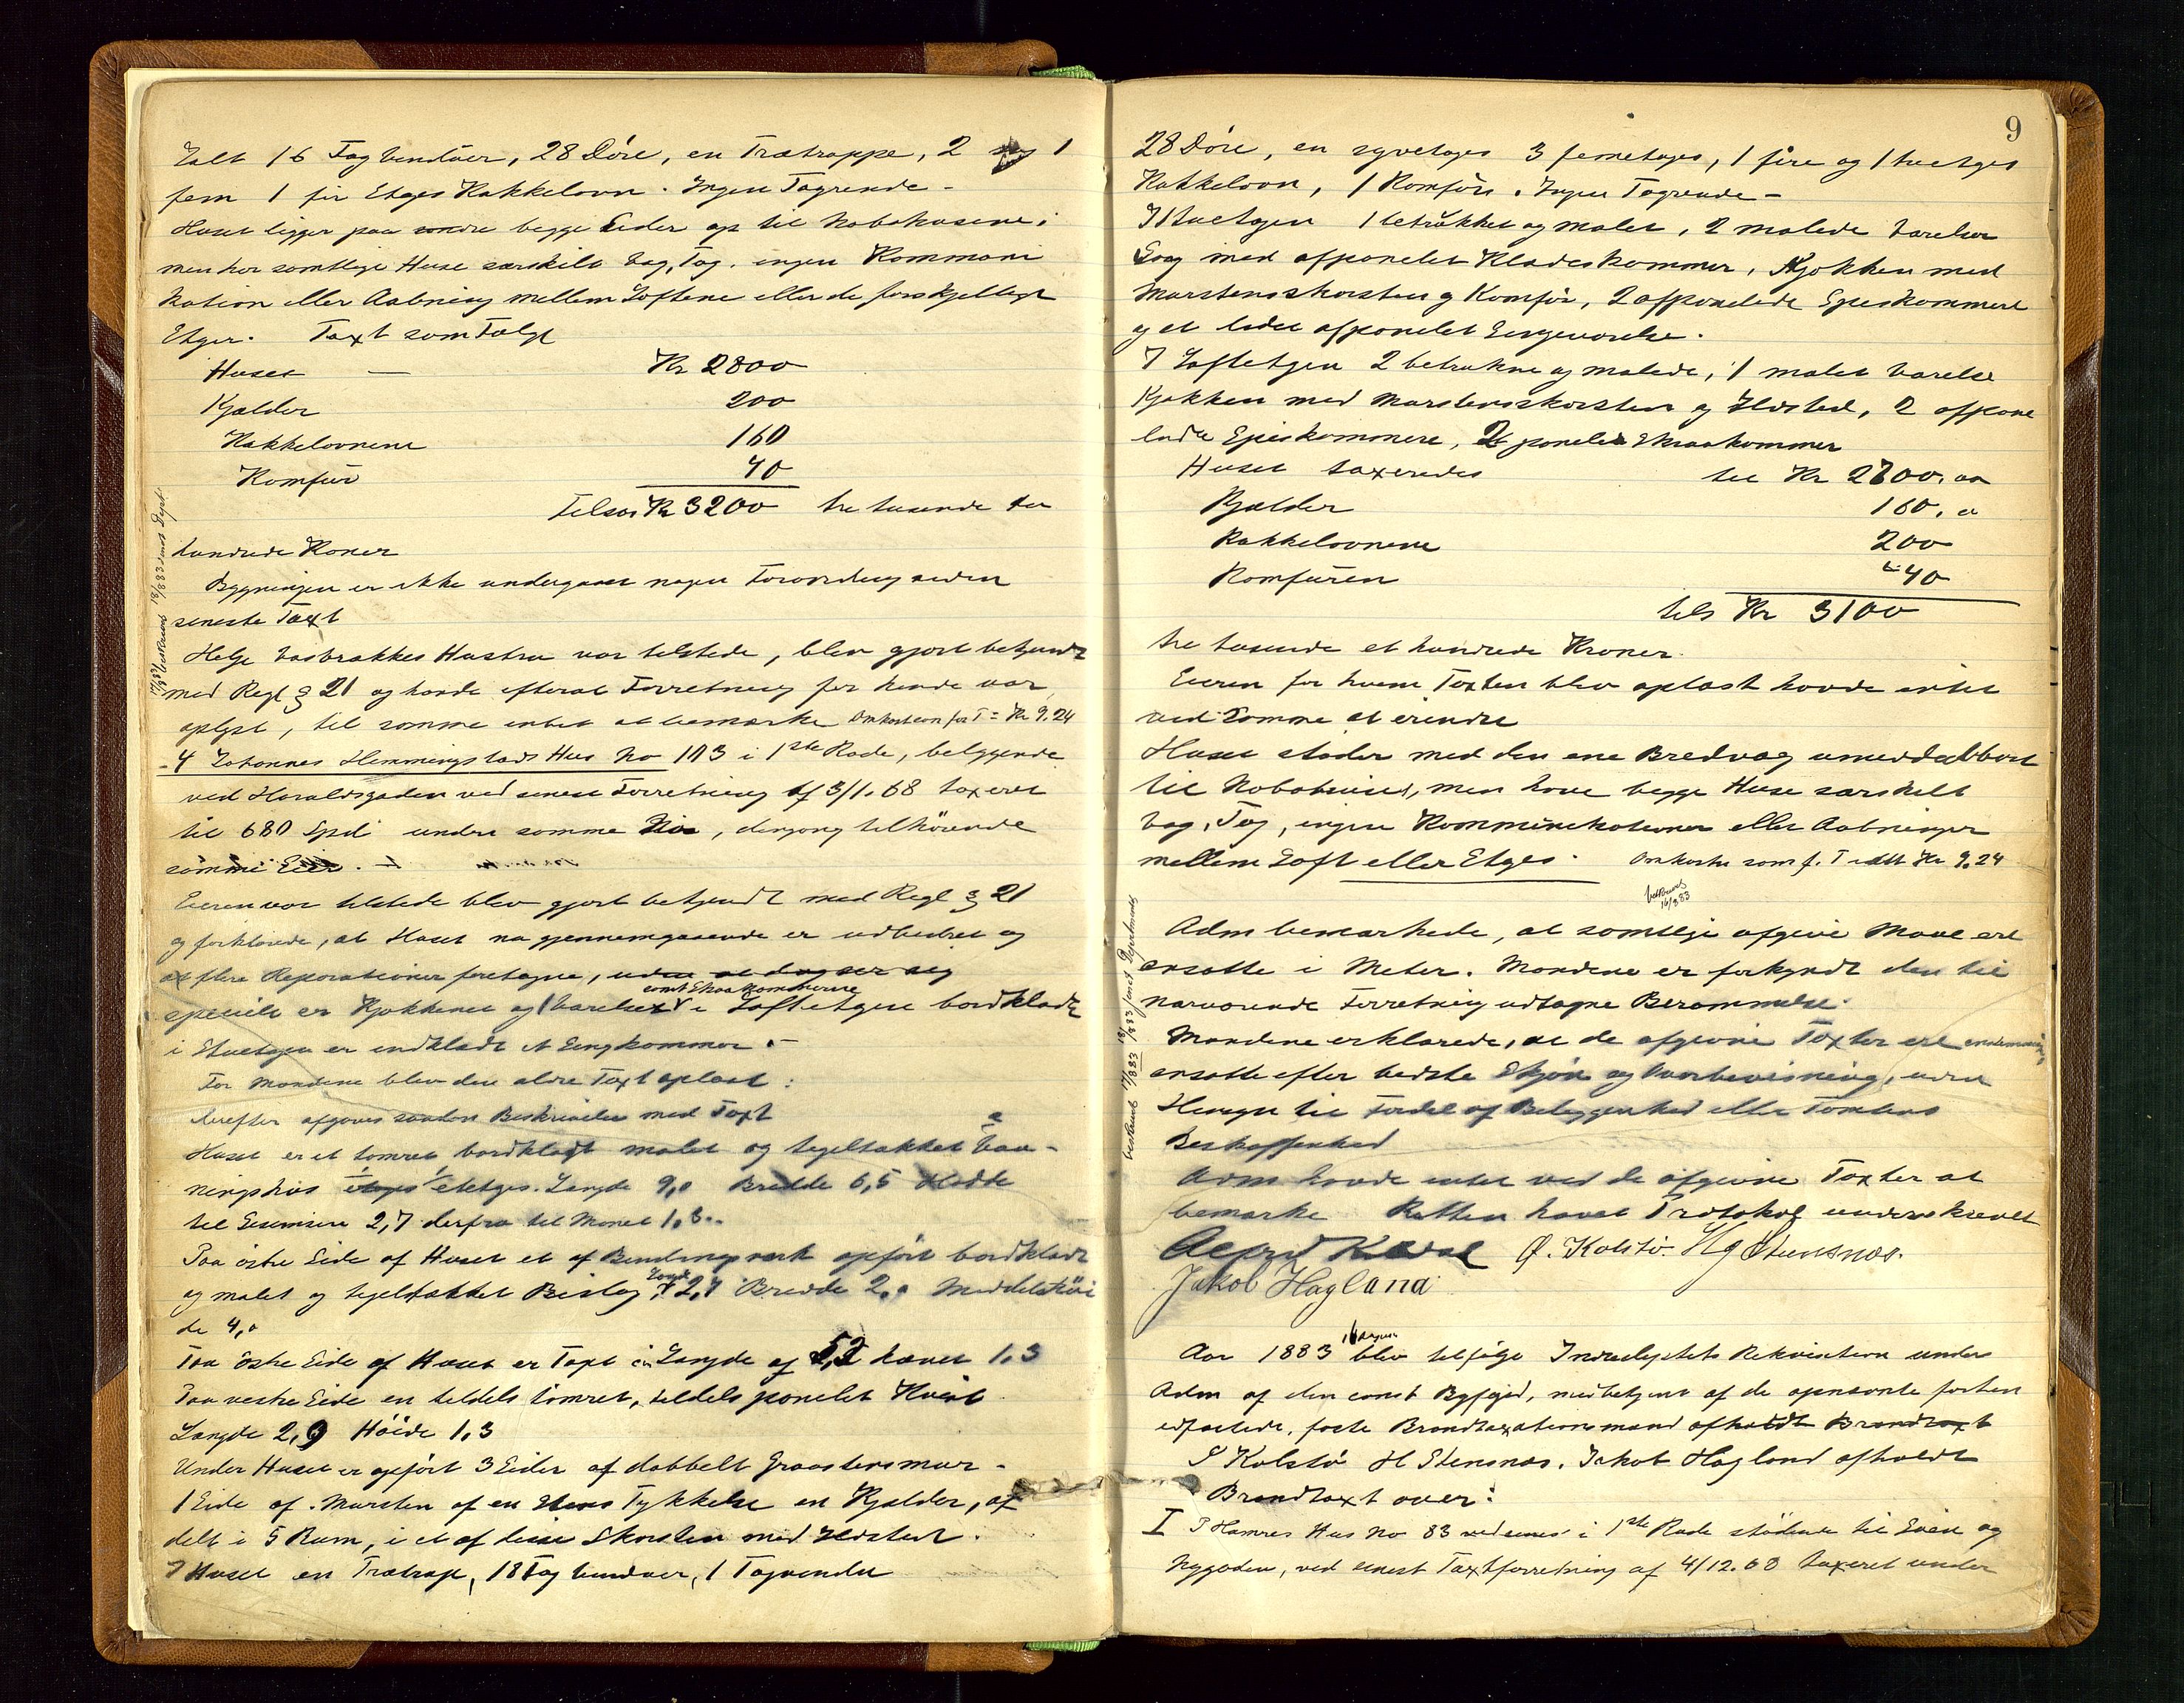 Ialt 16 Fag Vinduer, 28 Döre, en Trætrappe, 2 1
fem 1 fir Etages Kakkelovn. Ingen Tagrende -
Huset ligger paa begge Sider op til Nabohusene;
men har samtlige Huse særskilt Væg, Tag. ingen Kommuni
kation eller Aabning mellem Loftene eller de forskjellige
Etager. Taxt som Fölge
Huset — Kr 2800
Kjælder 200
Kakkelovnene 160
Komfür 40
Tilsas Kr 3200 tre tusende to
hundrede Kroner
Bygningen er ikke undergaaet nogen Forandring siden
seneste Taxt
Helge Vasbrækkes Hustru var tilstede, blev gjort bekjendt
med Regl § 21 og havde efterat Forretning for hende var
oplyst, til samme intet at bemærke Omkostn for T = Kr 9.24
-4 Johannes Hemmingstads Hus No 113 i 1ste Rode, beliggende
ved Haraldsgaden ved senest Forretning af 3/1.68 taxeret
til 680 Spd under samme No, dengang tilhörende
samme Eier. -
Eieren var tilstede blev gjort bekjendt med Regl § 21
og forklarede, at Huset nu gjennemgaaende er udbedret og
flere Reparationer foretagne, uden at dog
samt Skraakammerne
specielt er Kjökkenet og 1 Værelse i Loftetagen bordklædt
i Stuetagen er indklædt et Sengkammer. -
For Mændene blev den ældre Taxt oplæst:
derefter afgaves saadan Beskrivelse med Taxt
Huset er et tömret bordklædt malet og tegltækket Vaa-
ningshus etetages. Længde 9,0 Bredde 6,5 Höide
til Gesimsen 2,7 derfra til Mönet 1,8..
Paa östre Side af Huset et af Bindingsværk opfört bordklædt
og malet og tegltækket Bislag, Længde 2,7 Bredde 2,0 Middelshöi
de 4,0
Paa östre Side af Huset er Tagt en Længde af 5,2 hævet 1.3
Paa vestre Side en tildels tömret, tildels panelet Kvist
Længde 2,9 Höide 1,3
Under Huset er opfört 3 Sider af dobbelt Graastensmur -
1 Side af Mursten af en Stens Tykkelse en Kjælder, af
delt i 5 Rum, i et af disse Skorsten med Ildsted.
I Huset en Trætrap, 18 Fag Vinduer, 1 Tagvindu
17/8 83 beskrevet 18/8 83 sendt Dept.
9
28 Döre, en syvetages 3 femetages, 1 fire og 1 toetges
Kakkelovn, 1 Komfür. Ingen Tagrende -
I Stuetagen 1 betrukket og malet, 2 malede Værelser
Gang med afpanelet Klædeskammer, Kjökken med
Murstensskorsten og Komfür, 2 afpanelede Spiskammere
og et lidet afpanelet Sengeværelse.
I Loftetagen 2 betrukne og malede, 1 malet Værelse
Kjökken med Murstensskorsten og Ildsted, 2 afpane
lede Spiskammere, 2 panelede Skraakammer
Huset taxeredes til Kr 2700.00
Kjælder 160.00
Kakkelovnene 200
Komfüren 40
tils Kr 3100
tre tusende et hundrede Kroner.
Eieren for hvem Taxten blev oplæst havde intet
ved samme at erindre
Huset stöder med den ene Bredvæg umiddelbart
til Nabohuset, men have begge Huse særskilt
Væg, Tag, ingen Kommunikationer eller Aabninger
mellem Loft eller Etages. Omkostn som f. T idtt Kr 9.24
beskrevet
16/8 83
Adm bemærkede, at samtlige afgivne Maal ere
ansatte i Meter. Mændene er forkyndt den til
nærværende Forretning udtagne Berammelse.
Mændene erklærede, at de afgivne Taxter ere
ansatte efter bedste Skjön og Overbevisning, uden
Hensyn til Fordel af Beliggenhed eller Tomtens
Beskaffenhed
Adm havde intet ved de afgivne Taxter at
bemærke Retten hævet Protokol underskrevet
Ø. Kolstö. Hg Stensnæs.
Jakob Hagland
beskrevet 17/8 83 18/8 83 sendt Departmentet
Aar 1883 blev tilfölge Indredeptets Rekvisition under
Adm af den const Byfoged, medbetjent af de opnævnte forhen
edfæstede, faste Brandtaxationsmænd afholdt Brandtaxt
S Kolstö H Stensnæs. Jakob Hagland afholdt
Brandtaxt over:
I P Hamres Hus No 83 i 1ste Rode stödende til Söen og
Nygaden, ved senest Taxtforretning af 4/12.68 taxeret under